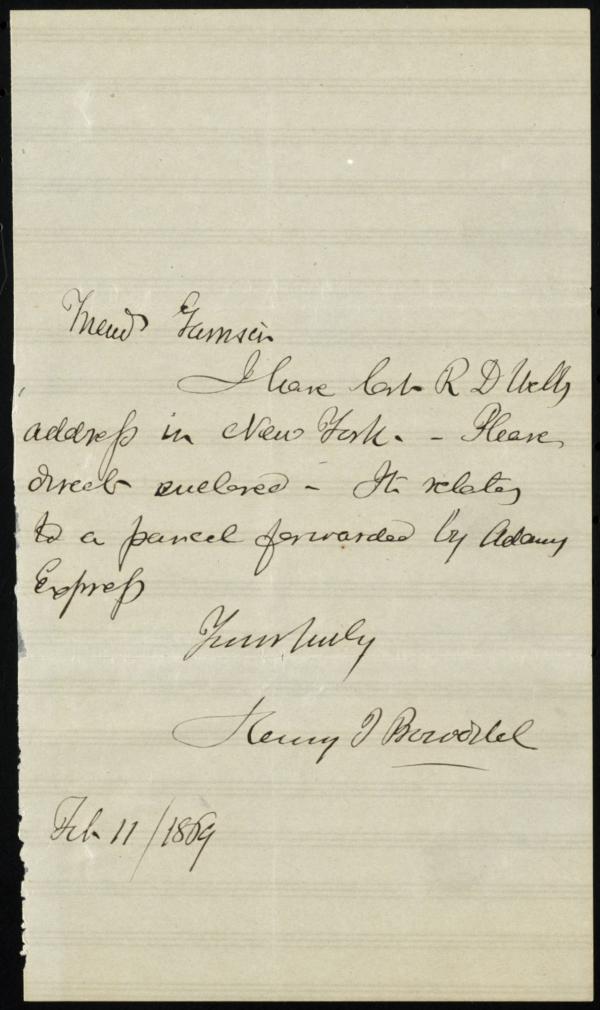 Friend Garrison
I have lost R D Webb's
address in New York. - Please
direct enclosed - It relates
to a parcel forwarded by Adams
Express
Yours truly
Henry I Bowditch
Feb 11/1869